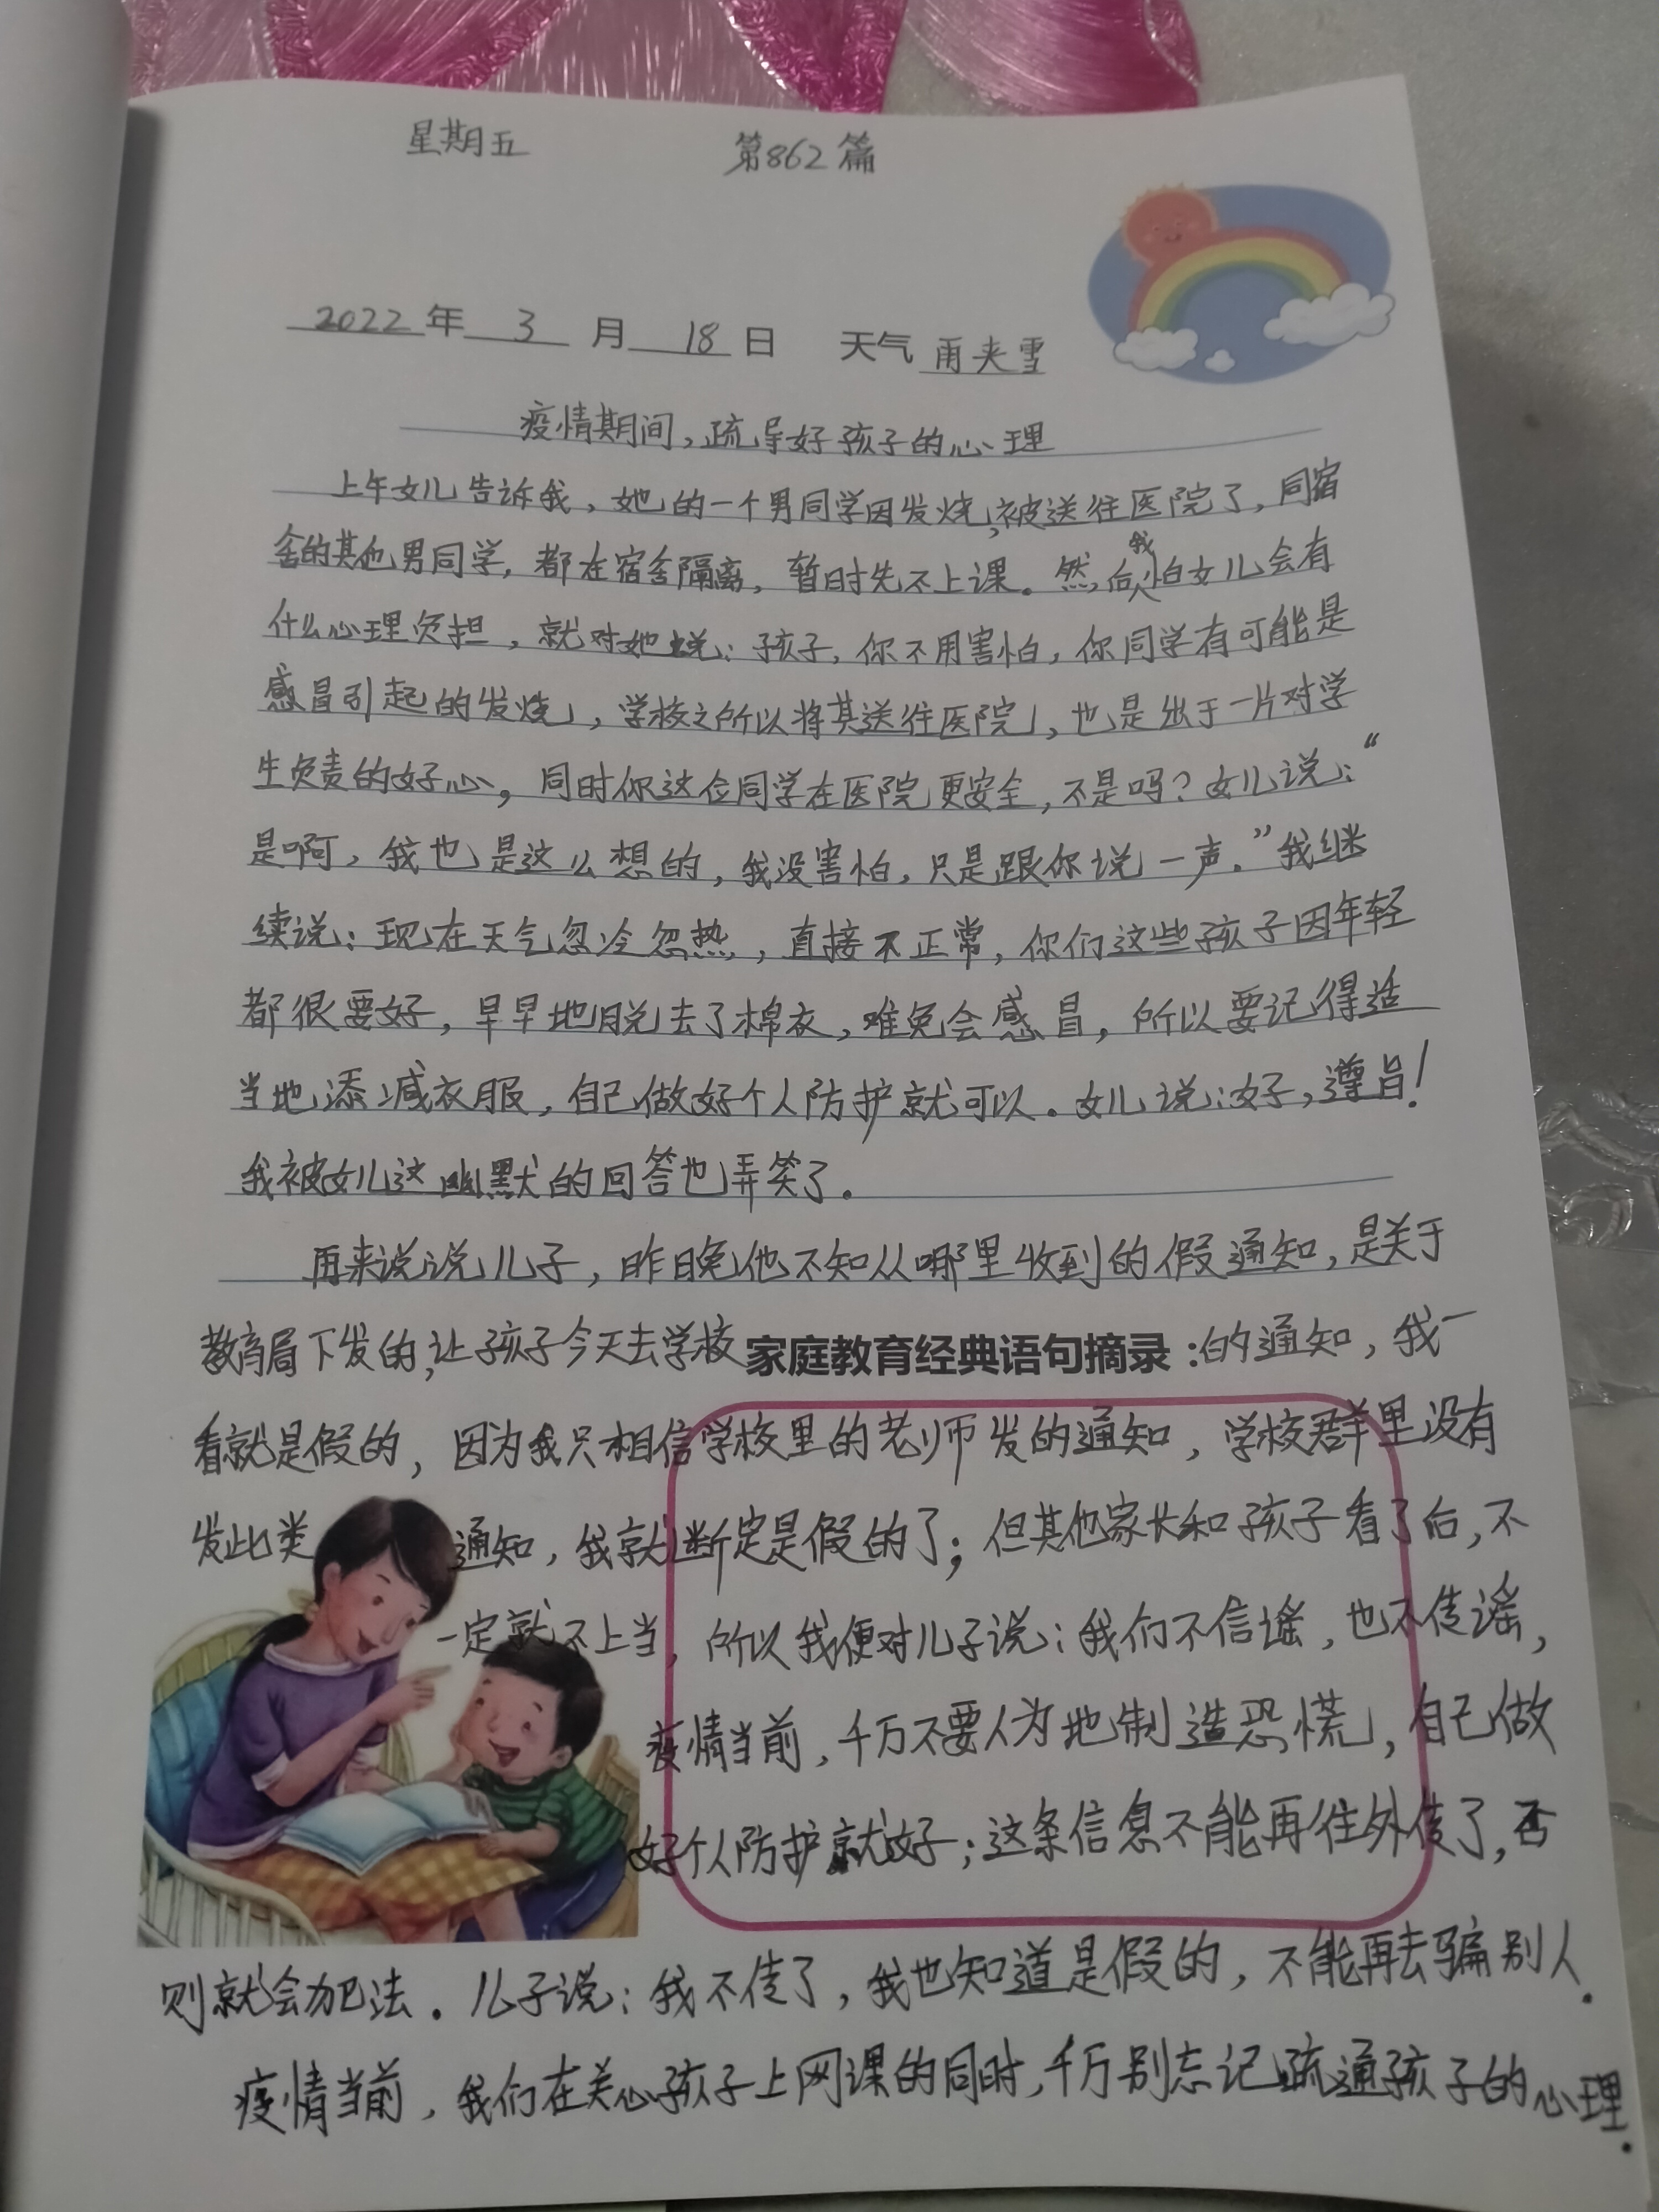 星期五 第862篇
2022年 3 月 18 日 天气 雨夹雪
疫情期间，疏导好孩子的心理
上午女儿告诉我，她的一个男同学因发烧，被送往医院了，同宿
舍的其他男同学，都在宿舍隔离，暂时先不上课。然后我怕女儿会有
什么心理负担，就对她说：孩子，你不用害怕，你同学有可能是
感冒引起的发烧，学校之所以将其送往医院，也是出于一片对学
生负责的好心，同时你这位同学在医院更安全，不是吗？女儿说：“
是啊，我也是这么想的，我没害怕，只是跟你说一声。”我继
续说：现在天气忽冷忽热，直接不正常，你们这些孩子因年轻
都很要好，早早地脱去了棉衣，难免会感冒，所以要记得适
当地添减衣服，自己做好个人防护就可以。女儿说：好，遵旨！
我被女儿这幽默的回答也弄笑了。
再来说说儿子，昨晚他不知从哪里收到的假通知，是关于
教育局下发的，让孩子今天去学校 家庭教育经典语句摘录：的通知，我一
看就是假的，因为我只相信学校里的老师发的通知，学校群里没有
发此类通知，我就断定是假的了；但其他家长和孩子看了后，不
一定就不上当，所以我便对儿子说：我们不信谣，也不传谣，
疫情当前，千万不要人为地制造恐慌，自己做
好个人防护就好；这条信息不能再往外传了，否
则就会犯法。儿子说：我不传了，我也知道是假的，不能再去骗别人。
疫情当前，我们在关心孩子上网课的同时，千万别忘记疏通孩子的心理。